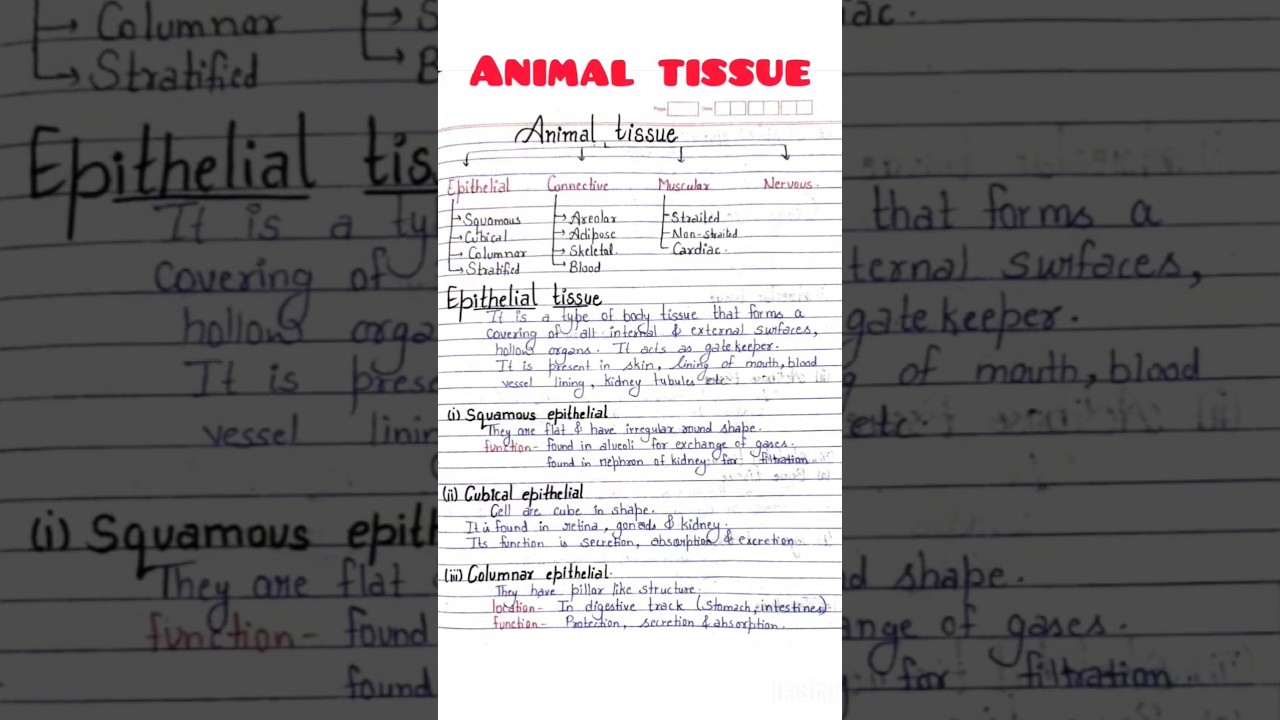 ANIMAL TISSUE
Page: Date:
Animal tissue
Epithelial Connective Muscular Nervous.
Squamous Areolar Strailed
Cubical Adipose Non-strailed
Columnar Skeletal. Cardiac.
Stratified Blood
Epithelial tissue
It is a type of body tissue that forms a
covering of all internal & external surfaces,
hollow organs. It acts as gatekeeper.
It is present in skin, lining of mouth, blood
vessel lining, kidney tubules etc.
(i) Squamous epithelial
They are flat & have irregular round shape.
function- found in alveoli for exchange of gases.
found in nephron of kidney for filtration
(ii) Cubical epithelial
Cell are cube in shape.
It is found in retina, gonads & kidney.
Its function is secretion, absorption & excretion
(iii) Columnar epithelial.
They have pillar like structure.
location- In digestive track (stomach, intestines)
function- Protection, secretion & absorption.